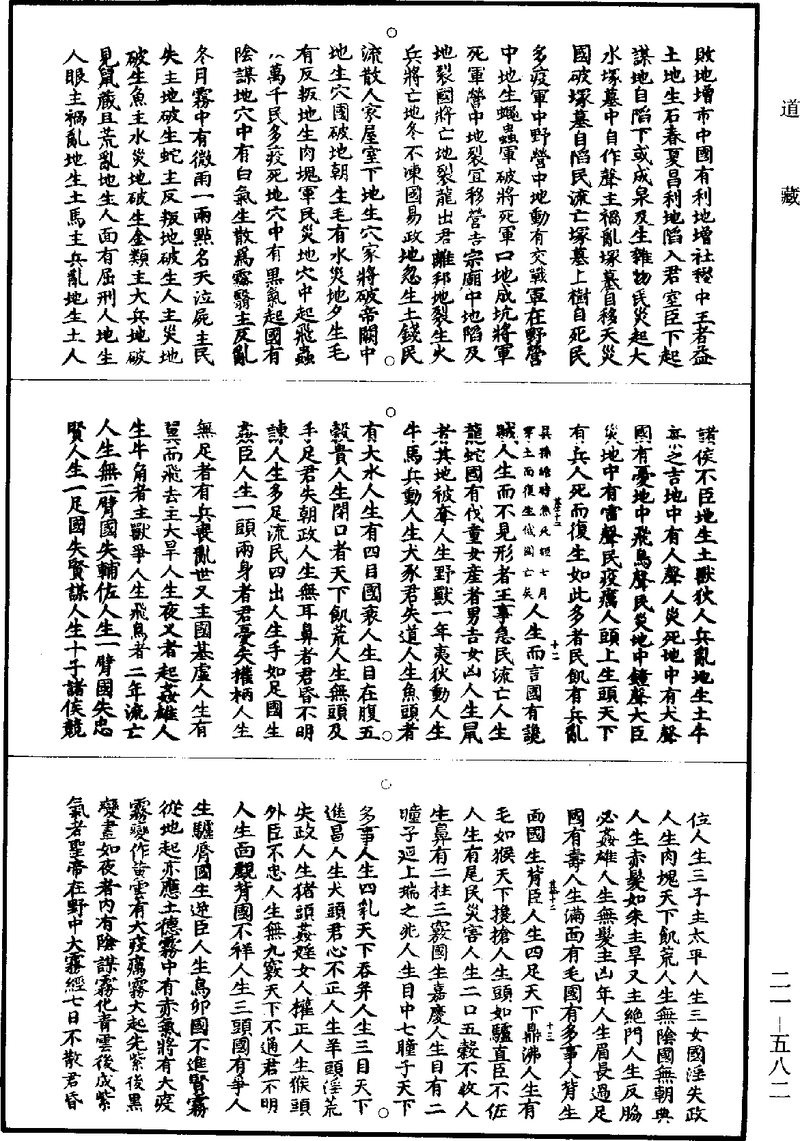 道藏
敗地增市中國有利地增社稷中王者益
土地生石春夏昌利地陷入君室臣下起
謀地自陷下或成泉及生雜物民災起大
水塚墓中自作聲主禍亂塚墓自移天災
國破塚墓自陷民流亡塚墓上樹自死民
多疫軍中野營中地動有交戰軍在野營
中地生蠅蟲軍破將死軍口地成坑將軍
死軍營中地裂宜移營吉宗廟中地陷及
地裂國將亡地裂龍出君離邦地裂生火
兵將亡地冬不凍國易政地忽生土錢民
流散人家屋室下地生穴家將破帝闕中
地生穴國破地朝生毛有水災地夕生毛
有反叛地生肉塊軍民災地穴中起飛蟲
八萬千民多疫死地穴中有黑氣起國有
陰謀地穴中有白氣生散為霧翳主反亂
冬月霧中有微雨一兩點名天泣屍主民
失主地破生蛇主反叛地破生人主災地
破生魚主水災地破生金類主大兵地破
見鼠藏且荒亂地生人面有屈刑人地生
人眼主禍亂地生土馬主兵亂地生土人
諸侯不臣地生土獸狄人兵亂地生土牛
無之吉地中有人聲人災死地中有犬聲
國有憂地中飛鳥聲民災地中鐘聲大臣
災地中有雷聲民疫癘人頭上生頭天下
有兵人死而復生如此多者民飢有兵亂
吳孫皓時無死頓七月
穿土而復生俄國亡矣
人生而言國有讒
賊人生而不見形者王事急民流亡人生
龍蛇國有伐童女產者男吉女凶人生鼠
者其地被奪人生野獸一年夷狄動人生
牛馬兵動人生犬豕君失道人生魚頭者
有大水人生有四目國衰人生目在腹五
穀貴人生閉口者天下飢荒人生無頭及
手足君失朝政人生無耳鼻者君昏不明
諫人生多足流民四出人生手如足國生
姦臣人生一頭兩身者君憂失權柄人生
無足者有兵喪亂世又主國基虛人生有
翼而飛去主大旱人生夜叉者起姦雄人
生牛角者主獸爭人生飛鳥者二年流亡
人生無二臂國失輔佐人生一臂國失忠
賢人生一足國失賢謀人生十子諸侯競
位人生三子主太平人生三女國淫失政
人生肉塊天下飢荒人生無陰國無朝典
人生赤髮如朱主旱又主絕門人生反腸
必姦雄人生無髮主凶年人生眉長過足
國有壽人生滿面有毛國有多事人背生
面國生背臣人生四足天下鼎沸人生有
毛如猴天下攙搶人生頭如驢直臣不佐
人生有尾民災害人生二口五穀不收人
生鼻有二柱三竅國生嘉慶人生目有二
瞳子延上瑞之兆人生目中七瞳子天下
多事人生四乳天下吞弁人生三目天下
進昌人生犬頭君心不正人生羊頭淫荒
失政人生猪頭姦婬女人權正人生猴頭
外臣不忠人生無九竅天下不通君不明
人生面觀背國不祥人生三頭國有爭人
生驢唇國生逆臣人生鳥卯國不進賢霧
從地起亦應土德霧中有赤氣將有大疫
霧變作黃雲有大疫癘霧大起先紫後黑
變晝如夜者內有陰謀霧化青雲後成紫
氣者聖帝在野中大霧經七日不散君昏
二一—五八二